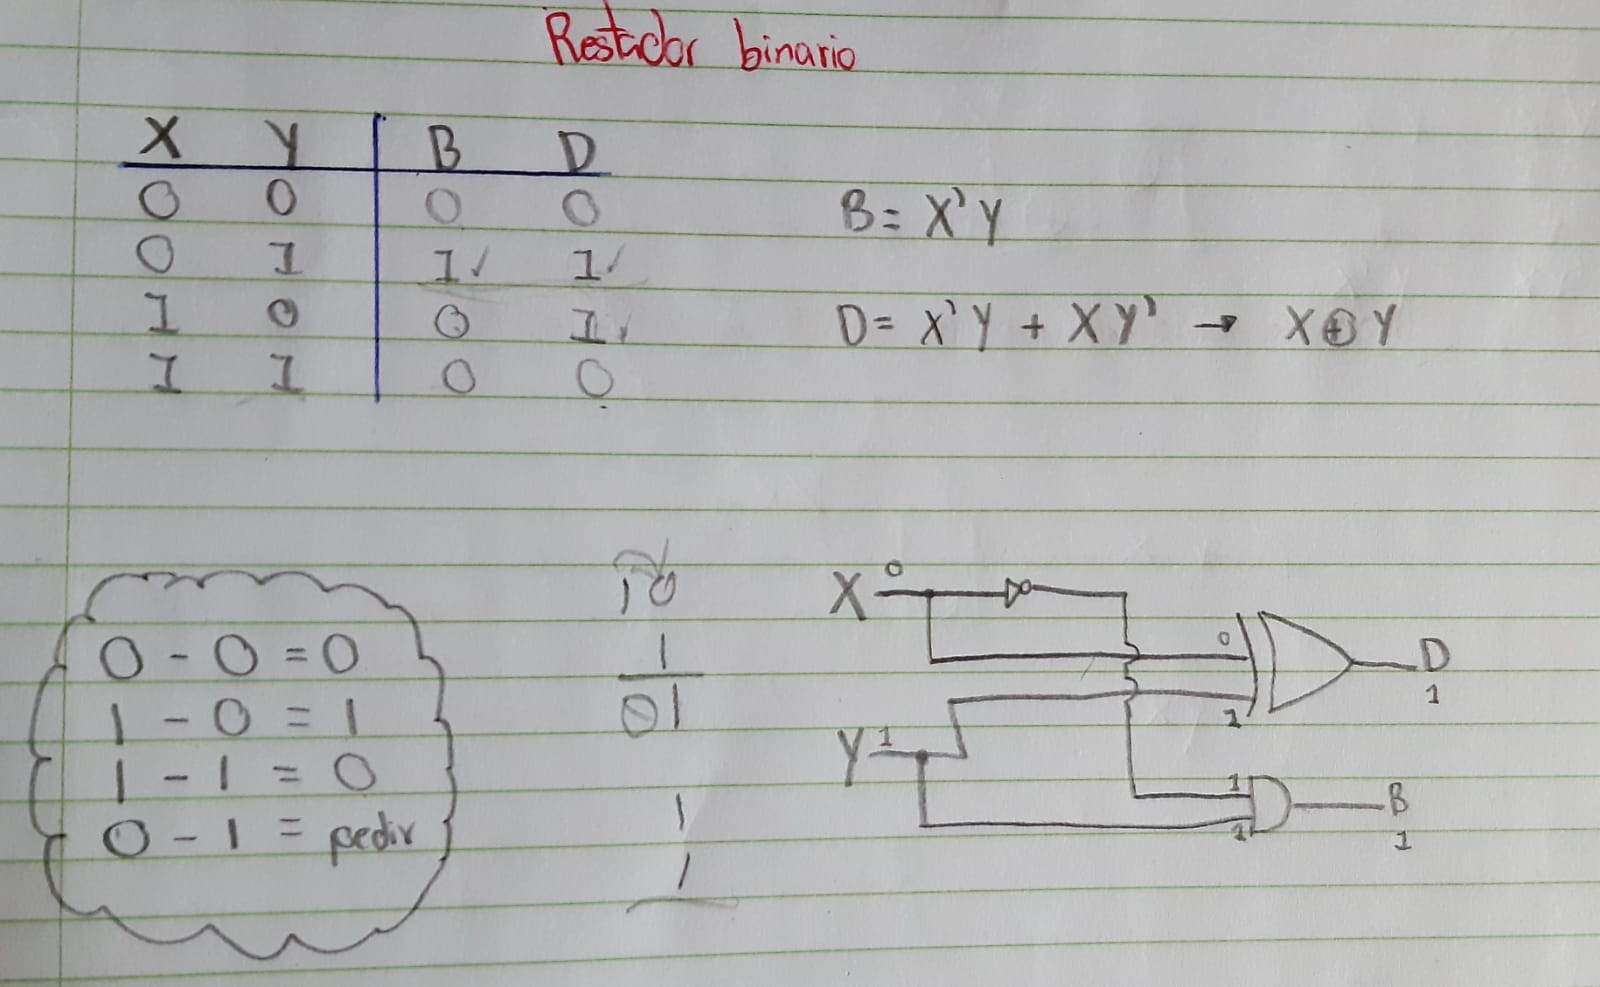 Restador binario
X Y B D
0 0 0 0
0 1 1 1
1 0 0 1
1 1 0 0
B = X'Y
D = X'Y + XY' → X⊕Y
0 - 0 = 0
1 - 0 = 1
1 - 1 = 0
0 - 1 = pedir
10
1
01
1
1
X 0
0
D
1
1
Y 1
1
B
1
1